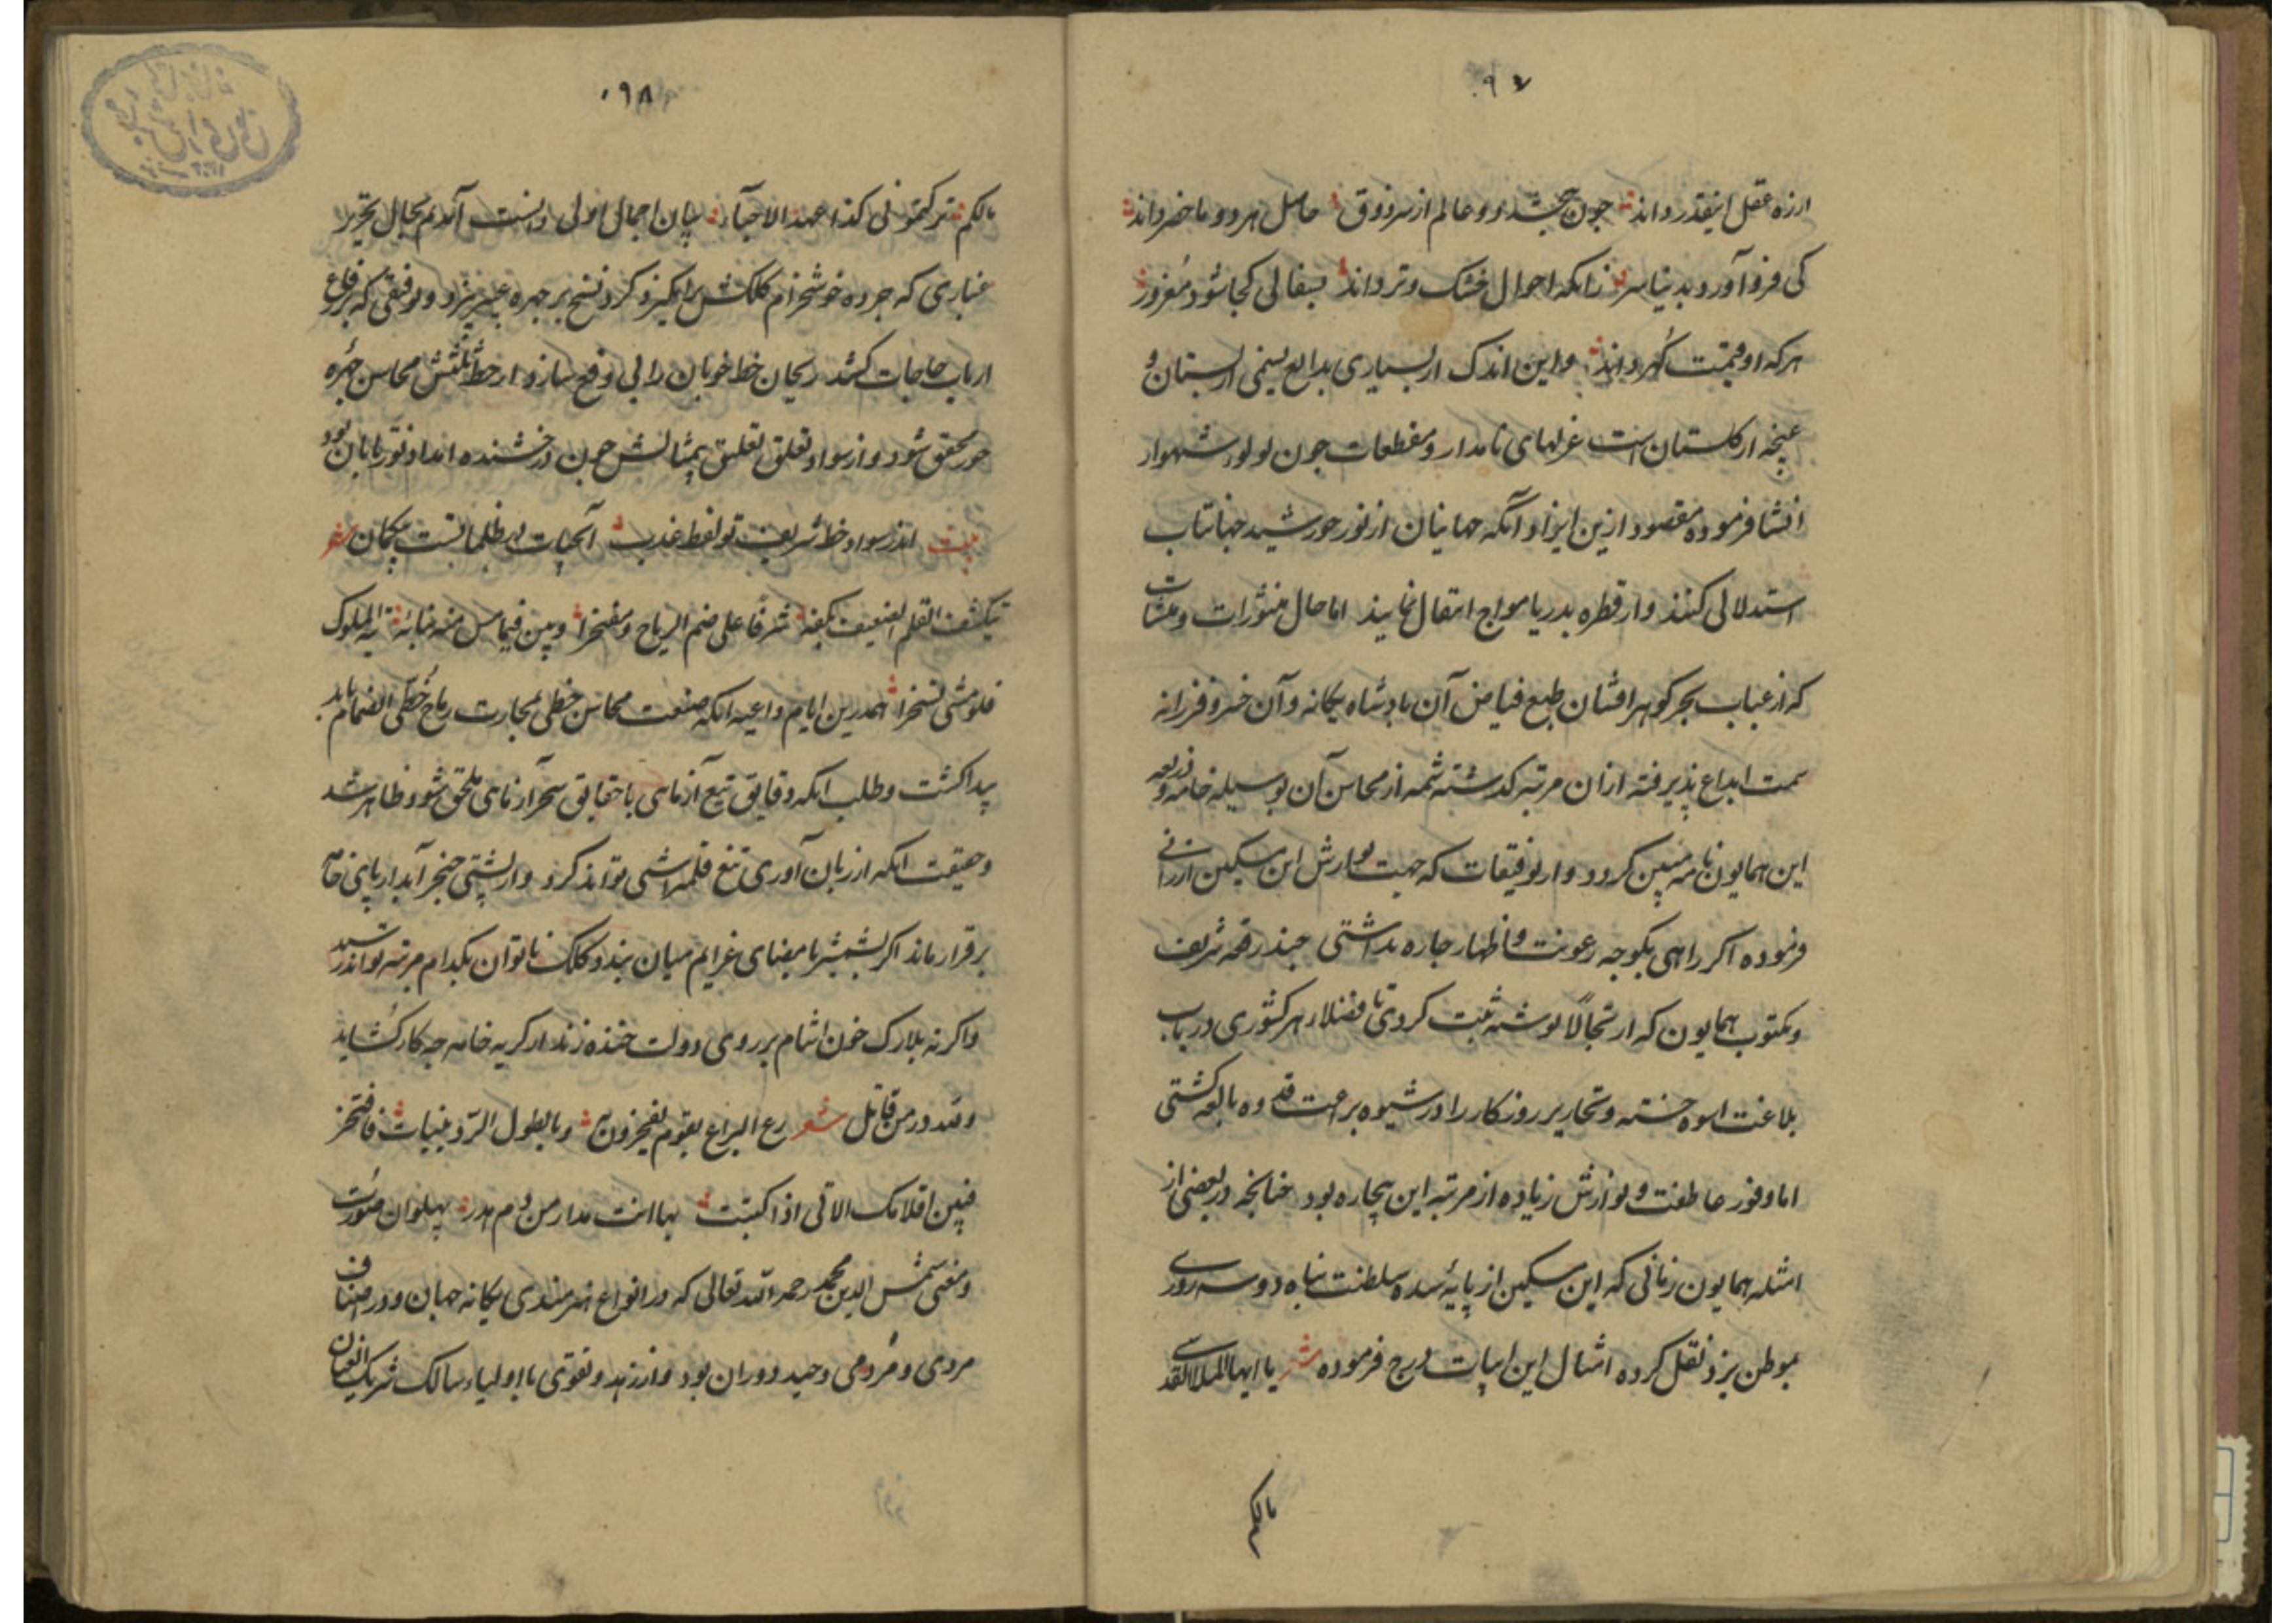 ۹۷
ارزه عقل اینقدر داند جون ببخشد دو عالم از سر ذوق حاصل هر دو ما حضر داند
کی فرو آورد بدنیا سر زانکه احوال خشک و تر داند بسفالی کجا شود مغرور
هر که او قیمت گهر داند و این اندک از بسیاری بدایع یعنی از بستان و
غنچه از گلستان است غزلهای نامدار و مقطعات جون لولو شهوار
انشا فرموده مقصود ازین ایراد آنکه جهانیان از نور خورشید جهانتاب
استدلالی کنند و از قطره بدریا مواج انتقال نمایند اما حال منثورات و منشآت
که از عباب بحر گوهر افشان طبع فیاض آن پادشاه یگانه و آن خسرو فرزانه
سمت ابداع پذیرفته از ان مرتبه گذشته شمه از محاسن آن بوسیله خامه و ذریعه
این همایون نامه مبین گردد و از توفیقات که جهت نوازش این مسکین ارزانی
فرموده اکر راهی بکوجه رعونت و اظهار جاره بداشتی جند رقعه شریف
و مکتوب همایون که ارتجالاً نوشته ثبت کردی تا فضلاء هر کشوری در باب
بلاغت اسوه جسته و نحاریر روزکار را در شیوه براعت قدوه بالغه کشتی
اما وفور عاطفت و نوازش زیاده از مرتبه این بیچاره بود جنانجه در بعضی از
امثله همایون زمانی که این مسکین از پایهٔ سده سلطنت پناه دو سه روزی
بموطن یزد نقل کرده امثال این ابیات درج فرموده شعر یا ایها الملا القدسی
مالکم
۹۸
مالکم ترکتمونی کذا عهد الاحباء بیان اجمالی اولی دانست آمدم بحال تحریر
غباری که جرده خوشخرام کلکش برانکیزد کرد نسخ بر جهره عبیر ریزد و توقیعی که بر رقاع
ارباب حاجات کشد ریحان خط خوبان را بی وقع سازد از خط ثلثش محاسن جهره
حور محقق شود و از سواد تعلق تعلیق بیمثالش جون درخشنده امداد نور تابان بود
بیت اندر سواد خط شریف تو لفظ عذب آبحیات در ظلماتست بیکمان شعر
شرفا علی ضم الریاح و مفخرا
فلو مشی تبخترا همدرین ایام داعیه انکه صنعت محاسن خطی بمجارت رماح خطی انضمام یابد
پیدا کشت و طلب انکه دقایق تیغ آزمایی با حقایق سحر آزمایی ملحق شود ظاهر شد
و حقیقت انکه از زبان آوری تیغ قلمتراشی تواند کرد و از پشتی خنجر آبدار پای خامه
برقرار ماند اکر بشمشیر با مضای عزایم میان نبندد کلک ناتوان بکدام مرتبه تواند رسید
و اکرنه بلارک خون اشام بر روی دولت خنده زند از کریه خامه جه کار کشاید
و لله در من قائل شعر دع الیراع لقوم یفخرون به و بالطول الردینیات فافتخر
فهن اقلامک اللاتی اذا کتبت بها اتت مداد من دم هدر پهلوان صورت
و معنی شمس الدین محمد رحمه الله تعالی که در انواع هنرمندی یکانه جهان و در اصناف
مردی و مردمی وحید دوران بود و از زهد و تقوی با اولیاء سالک شریک العنان